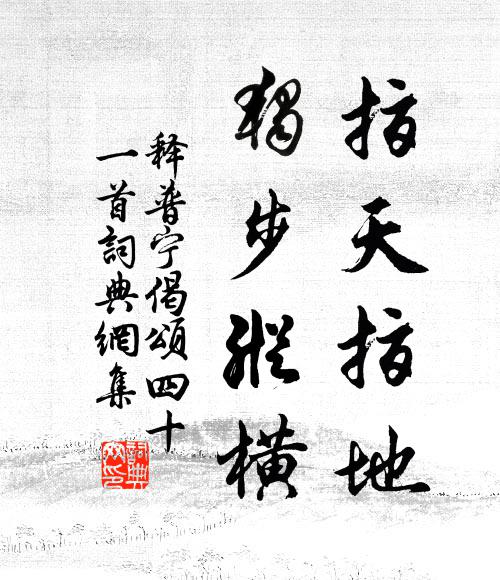 指天指地
獨步縱橫
释普宁偈頌四十
一首詞典網集
詞典